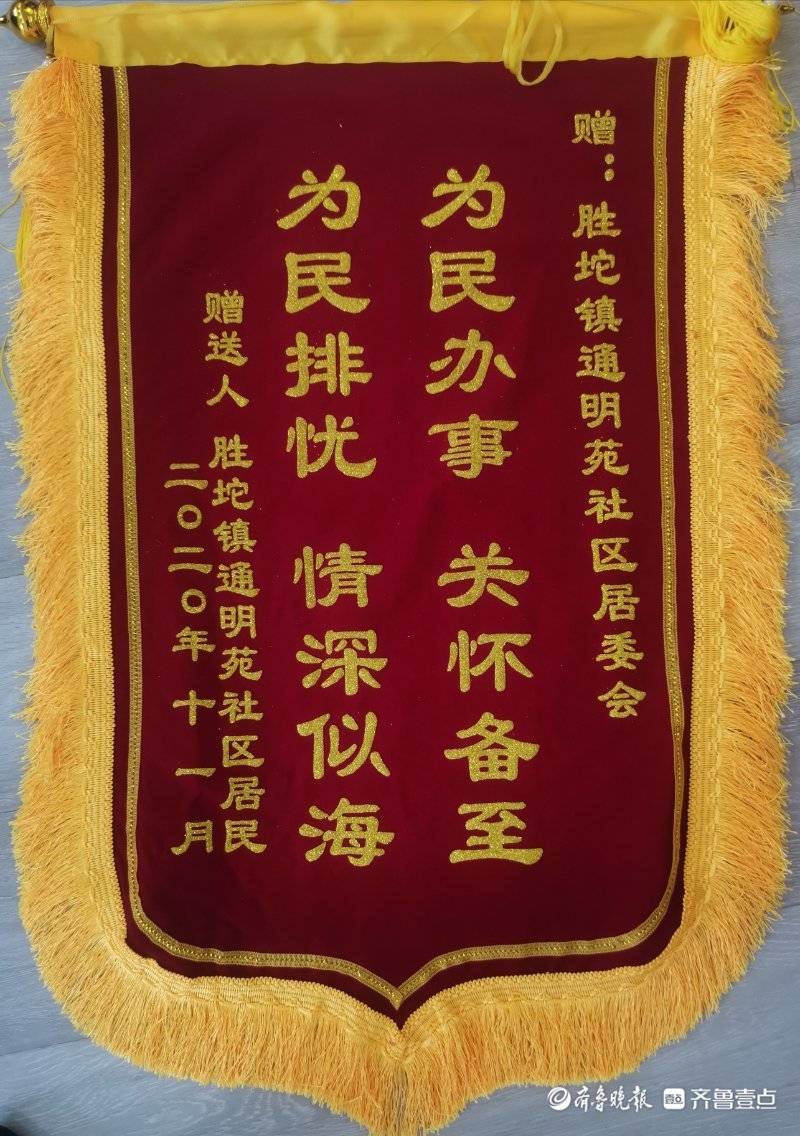 赠：胜坨镇通明苑社区居委会
为民办事 关怀备至
为民排忧 情深似海
赠送人 胜坨镇通明苑社区居民
二〇二〇年十一月
齐鲁晚报 齐鲁壹点